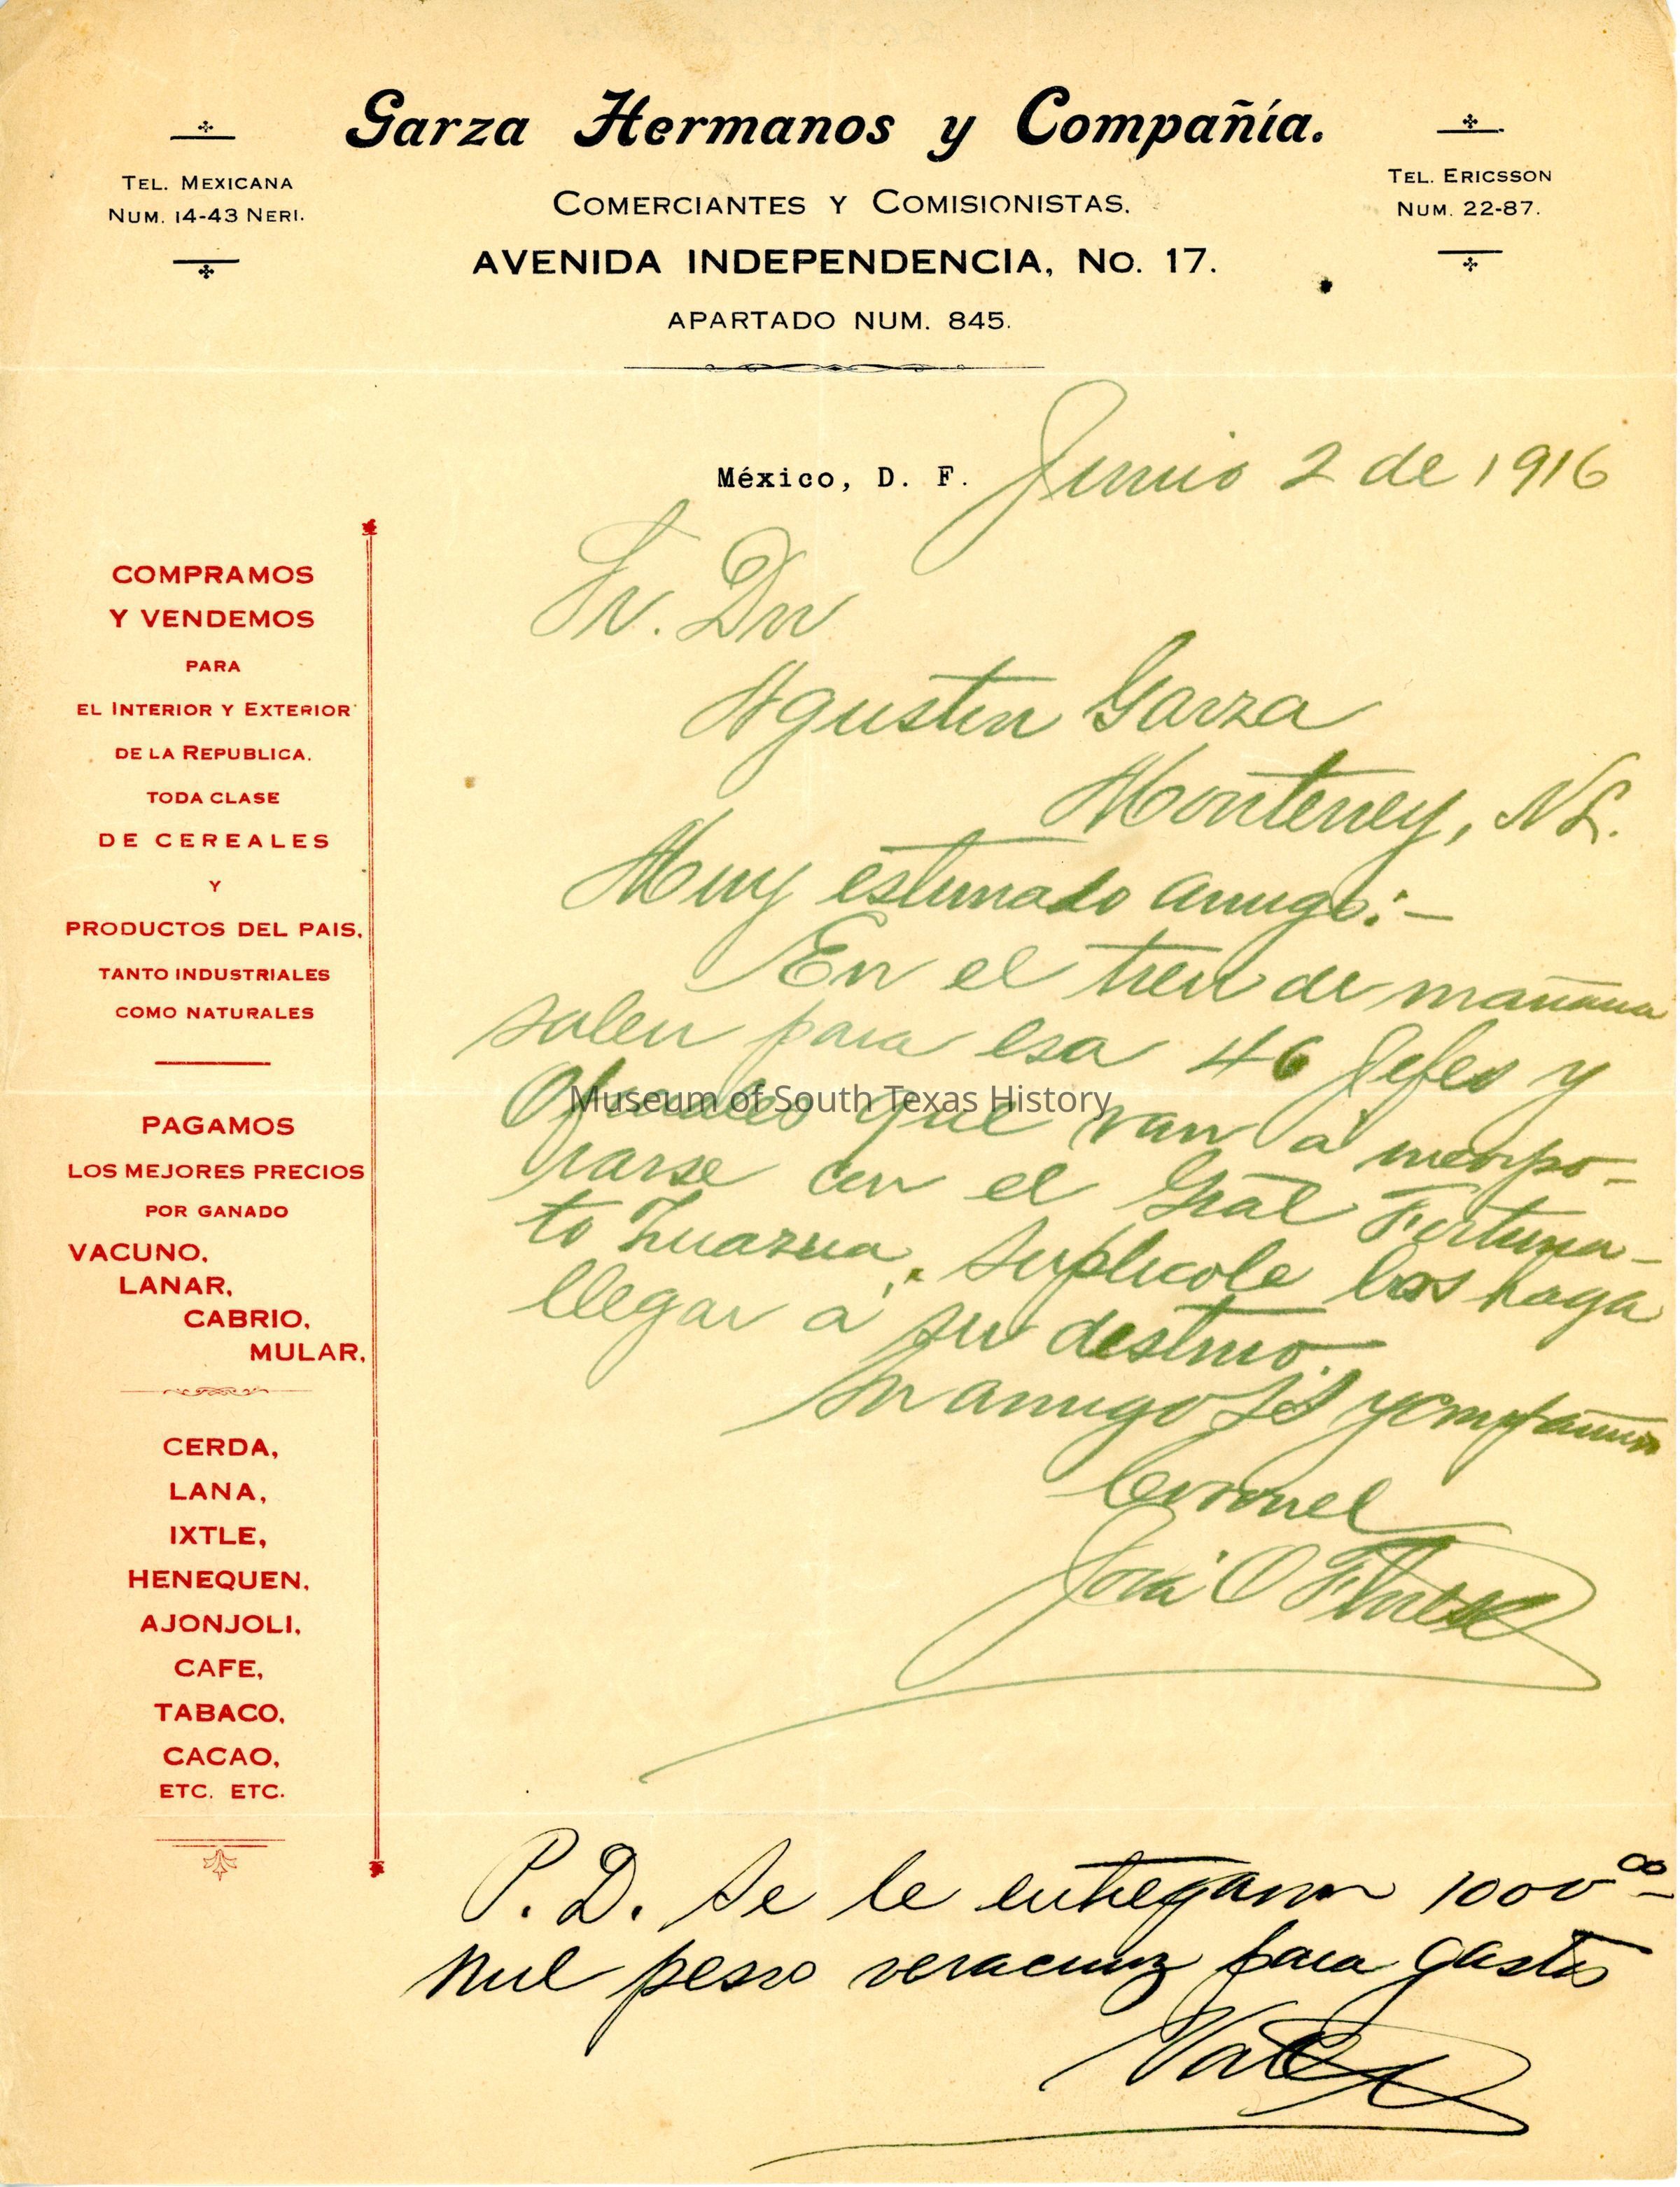 Garza Hermanos y Compañía.
COMERCIANTES Y COMISIONISTAS.
AVENIDA INDEPENDENCIA, No. 17.
APARTADO NUM. 845.
TEL. MEXICANA
NUM. 14-43 NERI.
TEL. ERICSSON
NUM. 22-87.
México, D. F. Junio 2 de 1916
COMPRAMOS
Y VENDEMOS
PARA
EL INTERIOR Y EXTERIOR
DE LA REPUBLICA.
TODA CLASE
DE CEREALES
Y
PRODUCTOS DEL PAIS,
TANTO INDUSTRIALES
COMO NATURALES
PAGAMOS
LOS MEJORES PRECIOS
POR GANADO
VACUNO,
LANAR,
CABRIO,
MULAR,
CERDA,
LANA,
IXTLE,
HENEQUEN,
AJONJOLI,
CAFE,
TABACO,
CACAO,
ETC. ETC.
Sr. Dn
Agustin Garza
Monterrey, N L.
Muy estimado amigo:—
En el tren de mañana
salen para esa 46 Jefes y
Oficiales que van á incorpo-
rarse con el Gral Fortuna-
to Zuazua. Suplicole los haga
llegar á su destino.
Su amigo SS y compañero
Coronel
José O Flores
P. D. Se le entregaron 1000 00
mil pesos veracruz para gastos
Vale
Museum of South Texas History